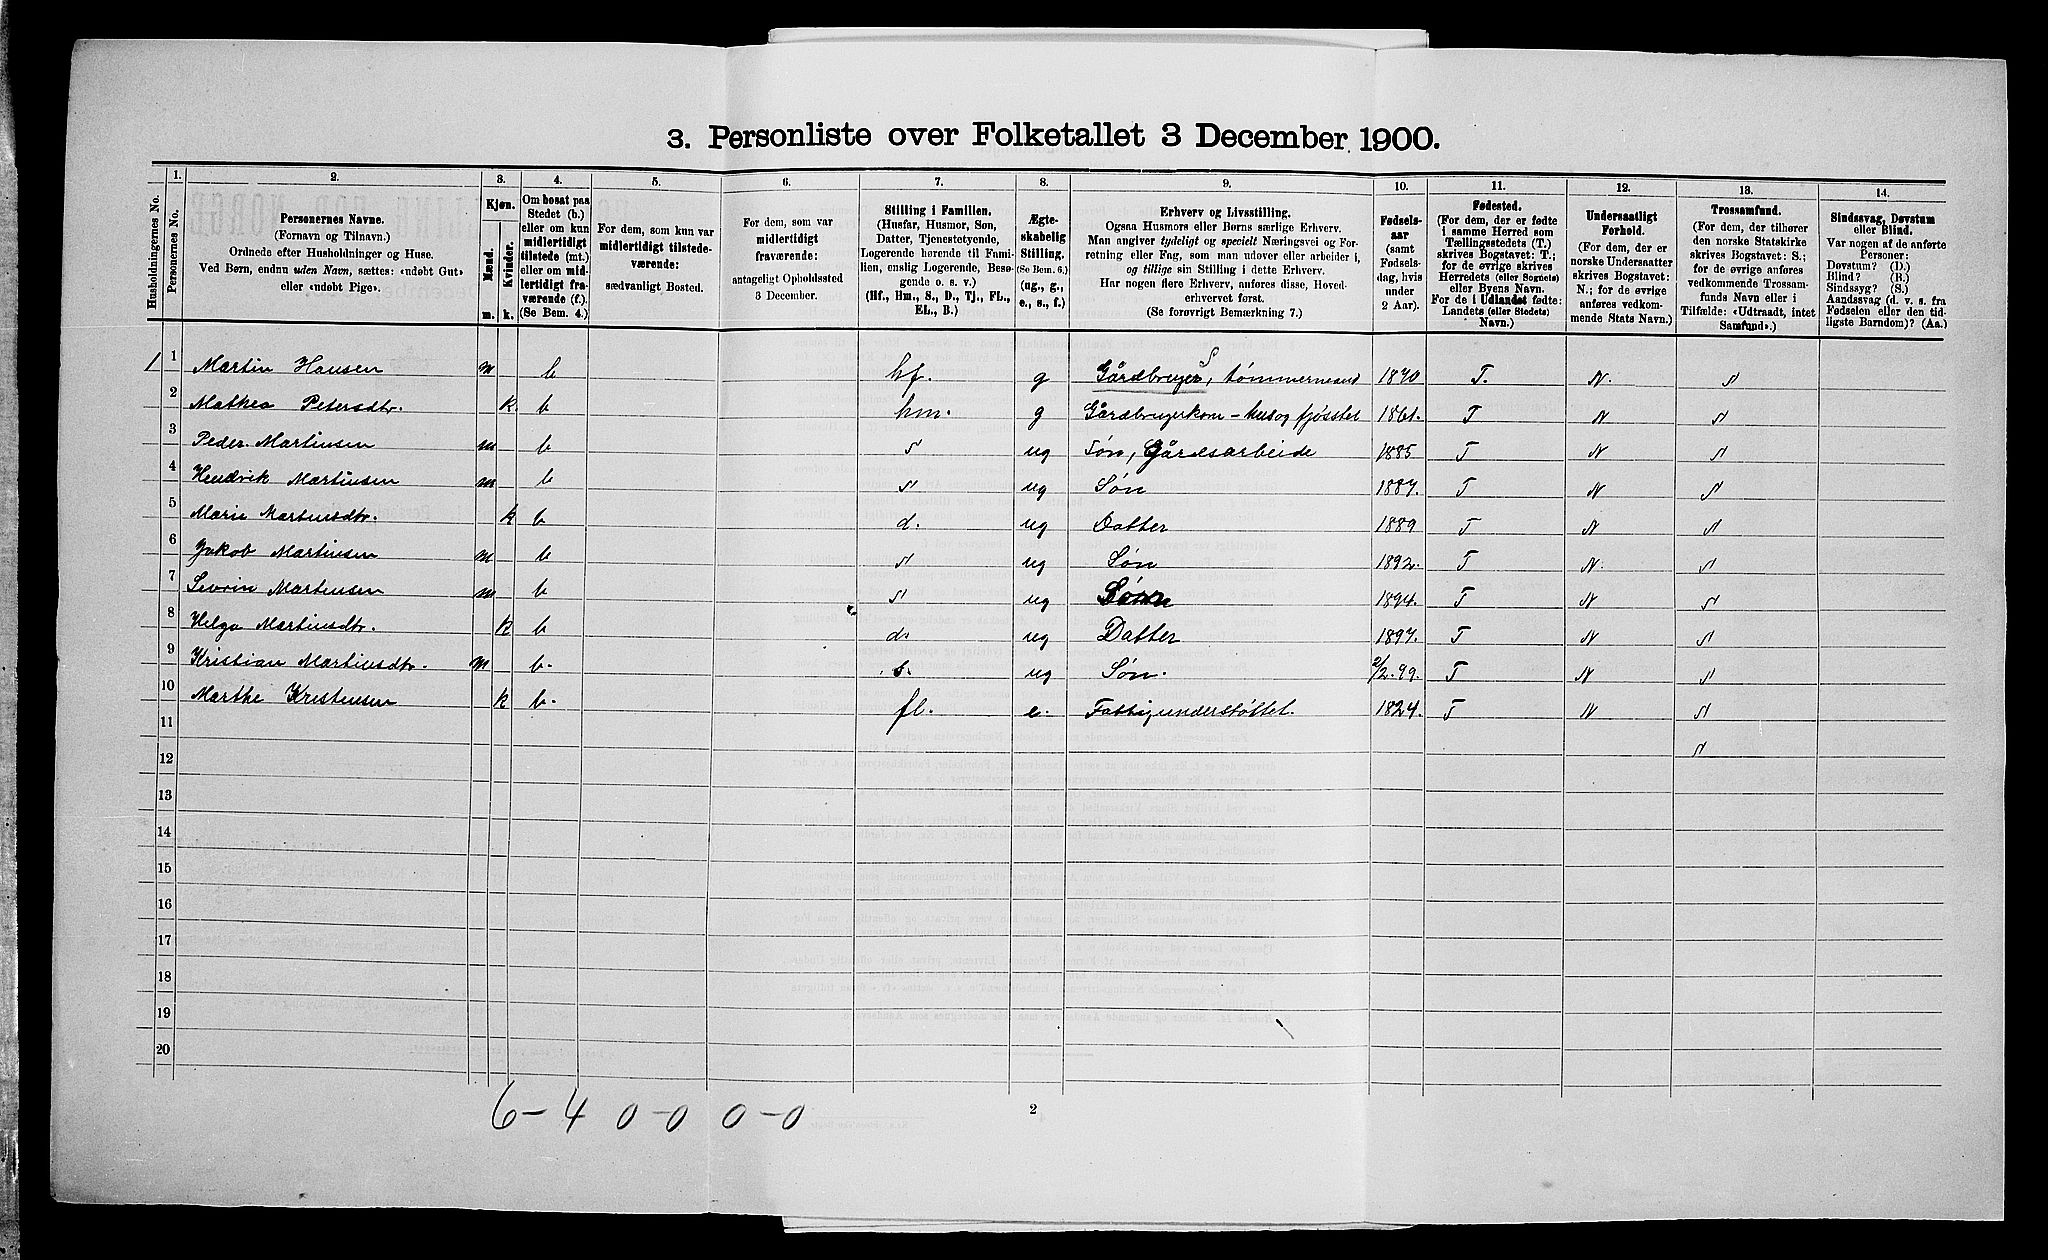 3. Personliste over Folketallet 3 December 1900.
1. 2. 3. 4. 5. 6. 7. 8. 9. 10. 11. 12. 13. 14.
Husholdningernes No.
Personernes No.
Personernes Navne.
(Fornavn og Tilnavn.)
Ordnede efter Husholdninger og Huse.
Ved Børn, endnu uden Navn, sættes: «udøbt Gut»
eller «udøbt Pige».
Kjøn.
Mænd.
Kvinder.
m. k.
Om bosat paa
Stedet (b.)
eller om kun
midlertidigt
tilstede (mt.)
eller om mid-
lertidigt fra-
værende (f.)
(Se Bem. 4.)
For dem, som kun var
midlertidigt tilstede-
værende:
sædvanligt Bosted.
For dem, som var
midlertidigt
fraværende:
antageligt Opholdssted
3 December.
Stilling i Familien.
(Husfar, Husmor, Søn,
Datter, Tjenestetyende,
Logerende hørende til Fami-
lien, enslig Logerende, Besø-
gende o. s. v.)
(Hf., Hm., S., D., Tj., FL.,
EL., B.)
Ægte-
skabelig
Stilling.
(Se Bem. 6.)
(ug., g.,
e., s., f.)
Erhverv og Livsstilling.
Ogsaa Husmors eller Børns særlige Erhverv.
Man angiver tydeligt og specielt Næringsvei og For-
retning eller Fag, som man udover eller arbeider i,
og tillige sin Stilling i dette Erhverv.
Har nogen flere Erhverv, anføres disse, Hoved-
erhvervet først.
(Se forøvrigt Bemærkning 7.)
Fødsels-
aar
(samt
Fødsels-
dag, hvis
under
2 Aar).
Fødested.
(For dem, der er fødte
i samme Herred som
Tællingsstedets (T.)
skrives Bogstavet: T.;
for de øvrige skrives
Herredets (eller Sognets)
eller Byens Navn.
For de i Udlandet fødte:
Landets (eller Stedets)
Navn.)
Undersaatligt
Forhold.
(For dem, der er
norske Undersaatter
skrives Bogstavet:
N.; for de øvrige
anføres vedkom-
mende Stats Navn.)
Trossamfund.
(For dem, der tilhører
den norske Statskirke
skrives Bogstavet: S.;
for de øvrige anføres
vedkommende Trossam-
funds Navn eller i
Tilfælde: «Udtraadt, intet
Samfund».)
Sindssvag, Døvstum
eller Blind.
Var nogen af de anførte
Personer:
Døvstum? (D.)
Blind? (B.)
Sindssyg? (S.)
Aandssvag (d. v. s. fra
Fødselen eller den tid-
ligste Barndom)? (Aa.)
1 1 Martin Hansen m b hf. g Gårdbruger S, tømmermand 1840 T. N. S
2 Mathea Petersdtr. k. b hm. g Gårdbrugerkom - hus og fjøsstel 1861. T N S
3 Peder Martinsen m b s ug Søn, Gårdsarbeide 1885 T N S
4 Hendrik Martinsen m b s ug Søn 1887. T N S
5 Marie Martinsdtr. k b d. ug Datter 1889 T N S
6 Jakob Martinsen m b s ug Søn 1892. T N. S
7 Sevrin Martinsen m b s ug Sønn 1894. T N S
8 Helga Martinsdtr. k b d. ug Datter 1897. T N S
9 Kristian Martinsdtr. m b. s. ug Søn. 2/2.99. T N S
10 Marthe Kristensen k b. fl. e. Fattigunderstøttet. 1824. T N S
11 S
12
13
14
15
16
17
18
19
20
6-4 0-0 0-0
2